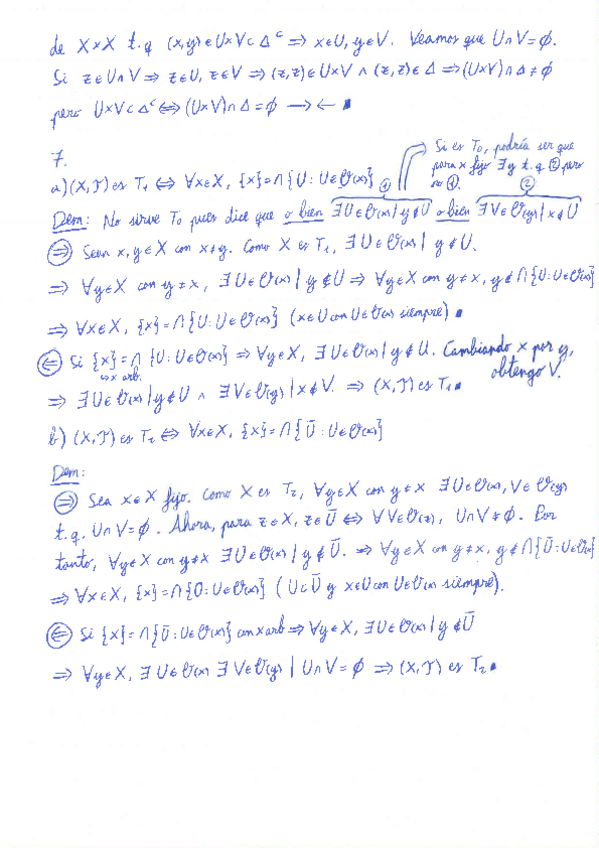 de X×X t.q (x,y)∈U×V⊂Δᶜ ⟹ x∈U, y∈V. Veamos que U∩V=∅.
Si z∈U∩V ⟹ z∈U, z∈V ⟹ (z,z)∈U×V ∧ (z,z)∈Δ ⟹ (U×V)∩Δ≠∅
pero U×V⊂Δᶜ ⟺ (U×V)∩Δ=∅ ⟶⟵ ∎
7.
Si es T₀, podría ser que
para x fijo ∃y t.q. ② pero
no ①.
a) (X,𝒯) es T₁ ⟺ ∀x∈X, {x}=∩{U: U∈𝒰(x)}
① ②
Dem: No sirve T₀ pues dice que o bien ∃U∈𝒰(x) | y∉U o bien ∃V∈𝒰(y) | x∉U
⟹) Sean x,y∈X con x≠y. Como X es T₁, ∃U∈𝒰(x) | y∉U.
⟹ ∀y∈X con y≠x, ∃U∈𝒰(x) | y∉U ⟹ ∀y∈X con y≠x, y∉∩{U: U∈𝒰(x)}
⟹ ∀x∈X, {x}=∩{U: U∈𝒰(x)} (x∈U con U∈𝒰(x) siempre) ∎
⟸) Si {x}=∩{U: U∈𝒰(x)} ⟹ ∀y∈X, ∃U∈𝒰(x) | y∉U. Cambiando x por y,
x arb.
obtengo V.
⟹ ∃U∈𝒰(x) | y∉U ∧ ∃V∈𝒰(y) | x∉V. ⟹ (X,𝒯) es T₁ ∎
b) (X,𝒯) es T₂ ⟺ ∀x∈X, {x}=∩{Ū: U∈𝒰(x)}
Dem:
⟹) Sea x∈X fijo. Como X es T₂, ∀y∈X con y≠x ∃U∈𝒰(x), V∈𝒰(y)
t.q. U∩V=∅. Ahora, para z∈X, z∈Ū ⟺ ∀V∈𝒰(z), U∩V≠∅. Por
tanto, ∀y∈X con y≠x ∃U∈𝒰(x) | y∉Ū. ⟹ ∀y∈X con y≠x, y∉∩{Ū: U∈𝒰(x)}
⟹ ∀x∈X, {x}=∩{Ū: U∈𝒰(x)} (U⊂Ū y x∈U con U∈𝒰(x) siempre).
⟸) Si {x}=∩{Ū: U∈𝒰(x)} con x arb ⟹ ∀y∈X, ∃U∈𝒰(x) | y∉Ū
⟹ ∀y∈X, ∃U∈𝒰(x) ∃V∈𝒰(y) | U∩V=∅ ⟹ (X,𝒯) es T₂ ∎